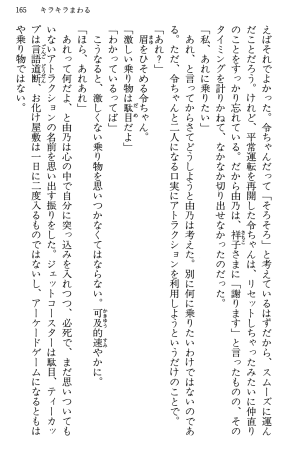 165　キラキラまわる
えばそれでよかった。令ちゃんだって「そろそろ」と考えているはずだから、スムーズに運ん
だことだろう。けれど、平常運転を再開した令ちゃんは、リセットしちゃったみたいに仲直り
のことをすっかり忘れている。だから由乃は、祥子さまに「謝ります」と言ったものの、その
タイミングを計りかねて、なかなか切り出せなかったのだった。
「私、あれに乗りたい」
　あれ、と言ってからさてどうしようと由乃は考えた。別に何に乗りたいわけではないのであ
る。ただ、令ちゃんと二人になる口実にアトラクションを利用しようというだけのことで。
「あれ？」
　眉をひそめる令ちゃん。
「激しい乗り物は駄目だよ」
「わかっているってば」
　こうなると、激しくない乗り物を思いつかなくてはならない。可及的速やかに。
「ほら、あれあれ」
　あれって何だよ、と由乃は心の中で自分に突っ込みを入れつつ、必死で、まだ思いついても
いないアトラクションの名前を思い出す振りをした。ジェットコースターは駄目、ティーカッ
プは言語道断、お化け屋敷は一日に二度入るものではないし、アーケードゲームになるともは
や乗り物ではない。